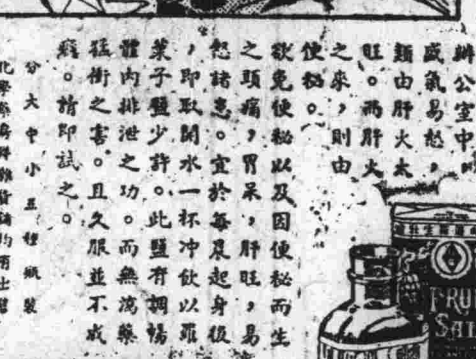 辦公室中，
盛氣易愁，
類由肝火太
旺。而肝火
之來，則由
便秘。
欲免便秘以及因便秘而生
之頭痛，胃呆，肝旺，易
怒諸患。宜於每晨起身後
，即取開水一杯冲飲以
菓子鹽少許。此鹽有調暢
體內排泄之功。而無瀉藥
猛衝之害。且久服並不成
癮。請即試之。
分大中小五種瓶裝
化學
FRUI
SAL